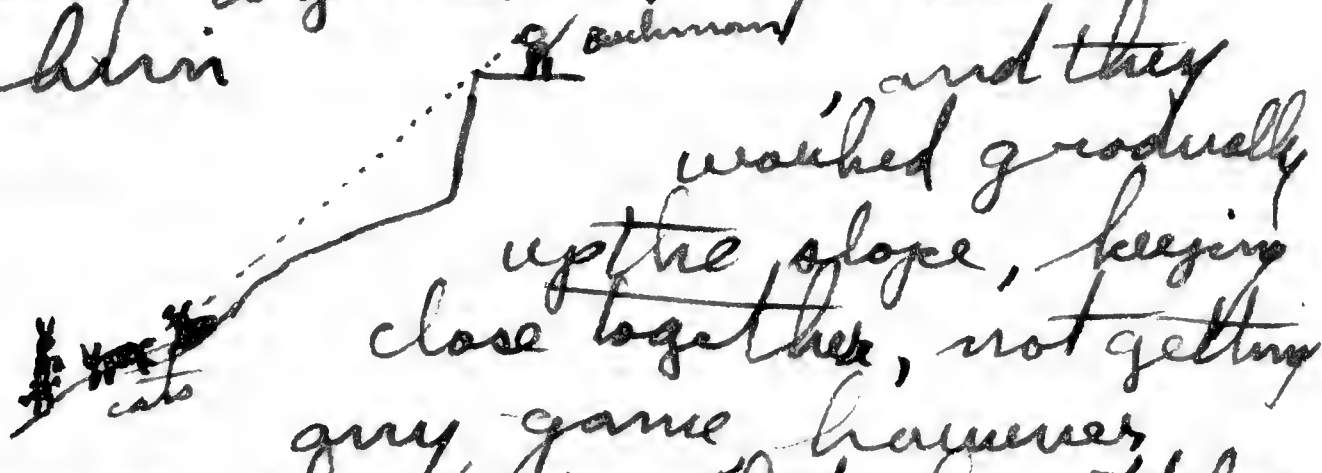 him , and they
worked gradually
up the slope, keeping
cats
close together, not getting
any game however